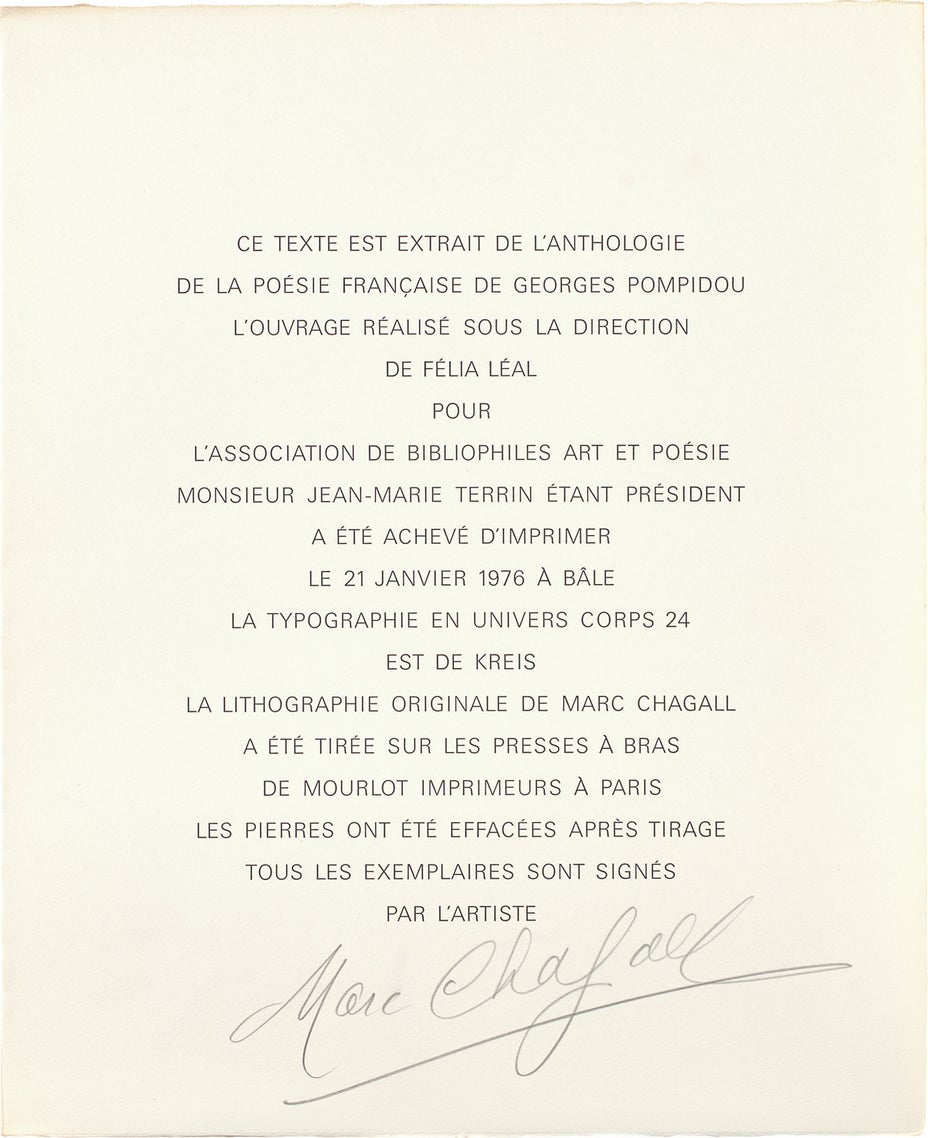 CE TEXTE EST EXTRAIT DE L'ANTHOLOGIE
DE LA POÉSIE FRANÇAISE DE GEORGES POMPIDOU
L'OUVRAGE RÉALISÉ SOUS LA DIRECTION
DE FÉLIA LÉAL
POUR
L'ASSOCIATION DE BIBLIOPHILES ART ET POÉSIE
MONSIEUR JEAN-MARIE TERRIN ÉTANT PRÉSIDENT
A ÉTÉ ACHEVÉ D'IMPRIMER
LE 21 JANVIER 1976 À BÂLE
LA TYPOGRAPHIE EN UNIVERS CORPS 24
EST DE KREIS
LA LITHOGRAPHIE ORIGINALE DE MARC CHAGALL
A ÉTÉ TIRÉE SUR LES PRESSES À BRAS
DE MOURLOT IMPRIMEURS À PARIS
LES PIERRES ONT ÉTÉ EFFACÉES APRÈS TIRAGE
TOUS LES EXEMPLAIRES SONT SIGNÉS
PAR L'ARTISTE
Marc Chagall